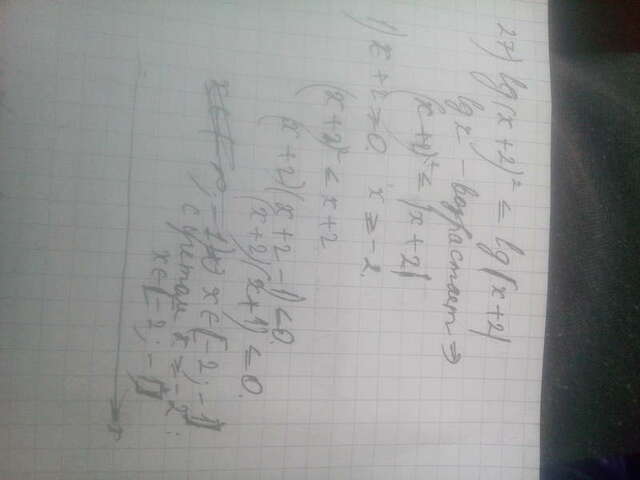 27) lg(x+2)² ≤ lg|x+2|
lg x – возрастает ⇒
(x+2)² ≤ |x+2|
1) x+2 ≥ 0 x ≥ -2
(x+2)² ≤ x+2
(x+2)(x+2-1) ≤ 0
(x+2)(x+1) ≤ 0
x ∈ [-2; -1]
с учетом x ≥ -2:
x ∈ [-2; -1]